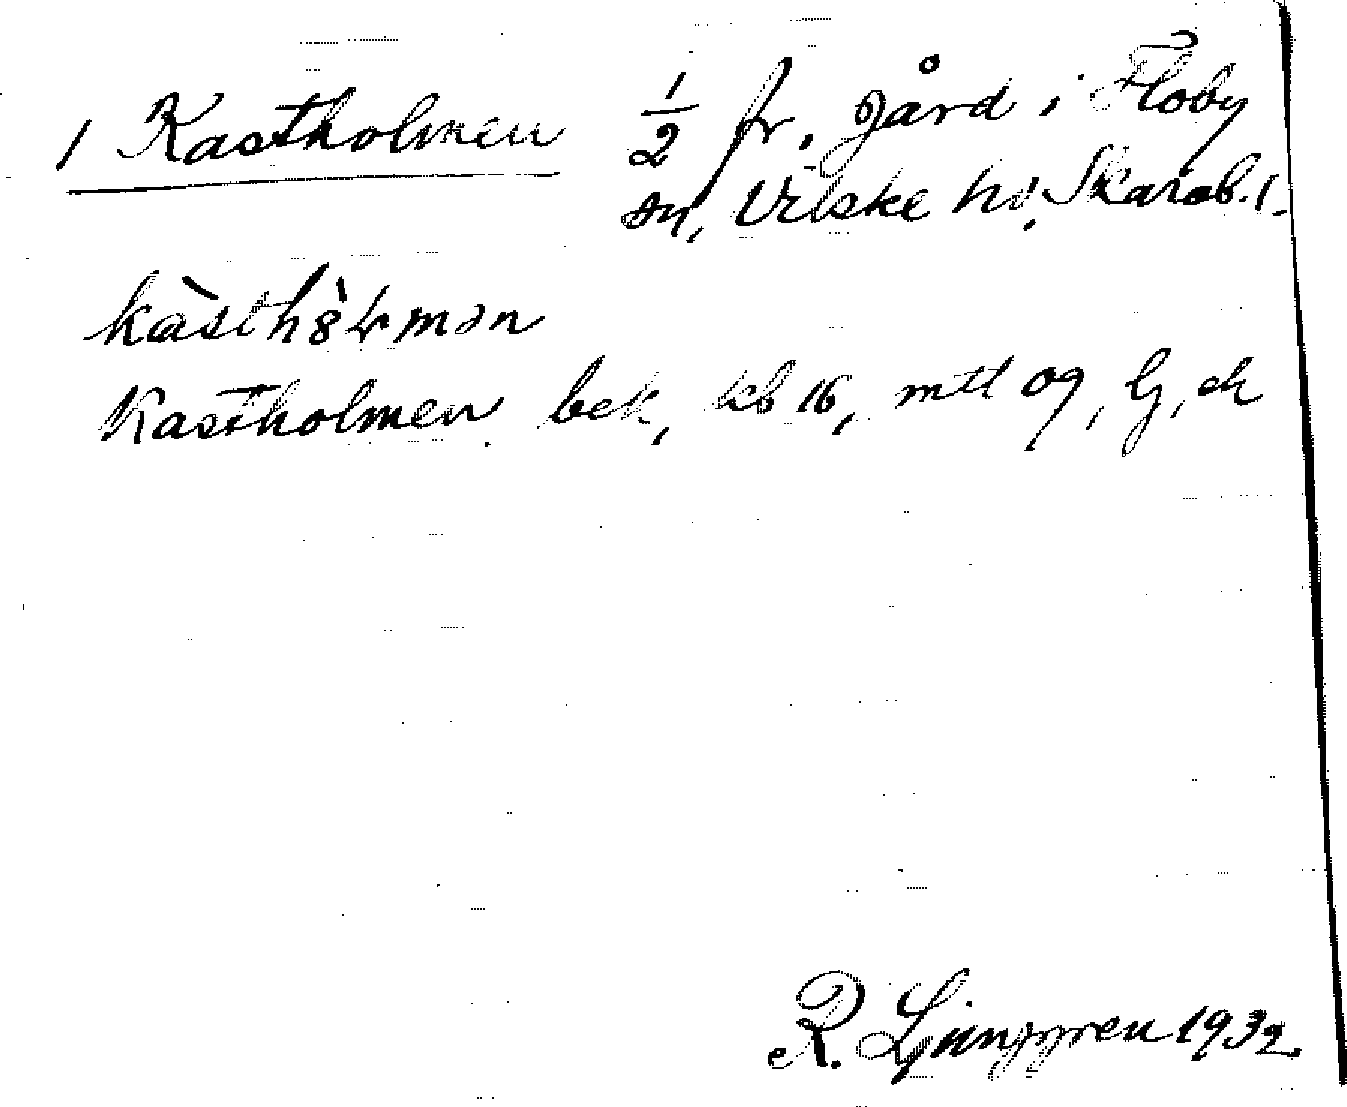 1 Kastholmen ½ fr. gård i Floby
sn, Vilske hd, Skarab. l.
kàsth8̀ɬmən
Kastholmen bek, kb 16, mtl og, lj, ck
R. Ljunggren 1932.